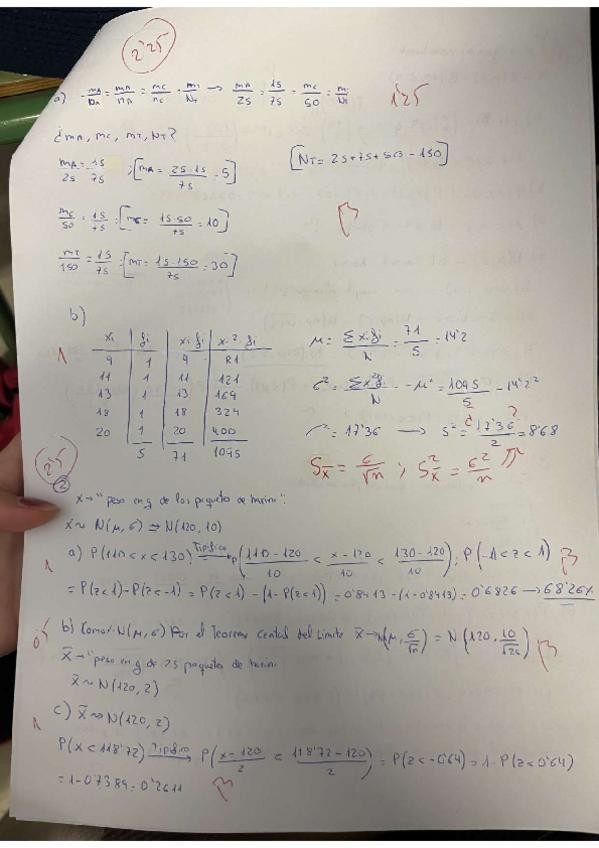 2'25
a) mA/nA = mB/nB = mC/nC = mT/NT → mA/25 = 15/75 = mC/50 = mT/NT
1'25
¿mA, mC, mT, NT?
mA/25 = 15/75 ; [mA = 25·15/75 = 5]
[NT = 25+75+50 = 150]
mC/50 = 15/75 ; [mC = 15·50/75 = 10]
mT/150 = 15/75 ; [mT = 15·150/75 = 30]
b)
1
xi | fi | xi·fi | xi²·fi
9 | 1 | 9 | 81
11 | 1 | 11 | 121
13 | 1 | 13 | 169
18 | 1 | 18 | 324
20 | 1 | 20 | 400
5 | 71 | 1095
μ = Σxi·fi/N = 71/5 = 14'2
σ² = Σxi²fi/N - μ² = 1095/5 - 14'2²
σ² = 17'36 → s² = ¿17'36/2? = 8'68
Sx̄ = σ/√n ; S²x̄ = σ²/n
2'5
②
X → "peso en g de los paquetes de harina":
X ~ N(μ, σ) = N(120, 10)
1
a) P(110 < x < 130) Tipifico → P(110-120/10 < x-120/10 < 130-120/10) ; P(-1 < z < 1)
= P(z<1) - P(z<-1) = P(z<1) - (1-P(z<1)) = 0'8413 - (1-0'8413) = 0'6826 → 68'26%
0'5
b) Como X~N(μ, σ) Por el Teorema Central del Límite X̄ → N(μ, σ/√n) = N(120, 10/√25)
X̄ → "peso en g de 25 paquetes de harina
X̄ ~ N(120, 2)
1
c) X̄ ~ N(120, 2)
P(x < 118'72) Tipifico → P(x-120/2 < 118'72-120/2) = P(z < -0'64) = 1 - P(z < 0'64)
= 1 - 0'7389 = 0'2611